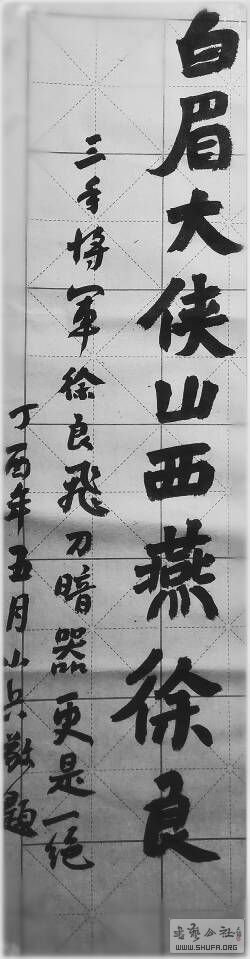 白眉大侠山西燕徐良
三手将軍徐良飛刀暗器更是一绝
丁酉年五月小兵敬題
WWW.SHUFA.ORG